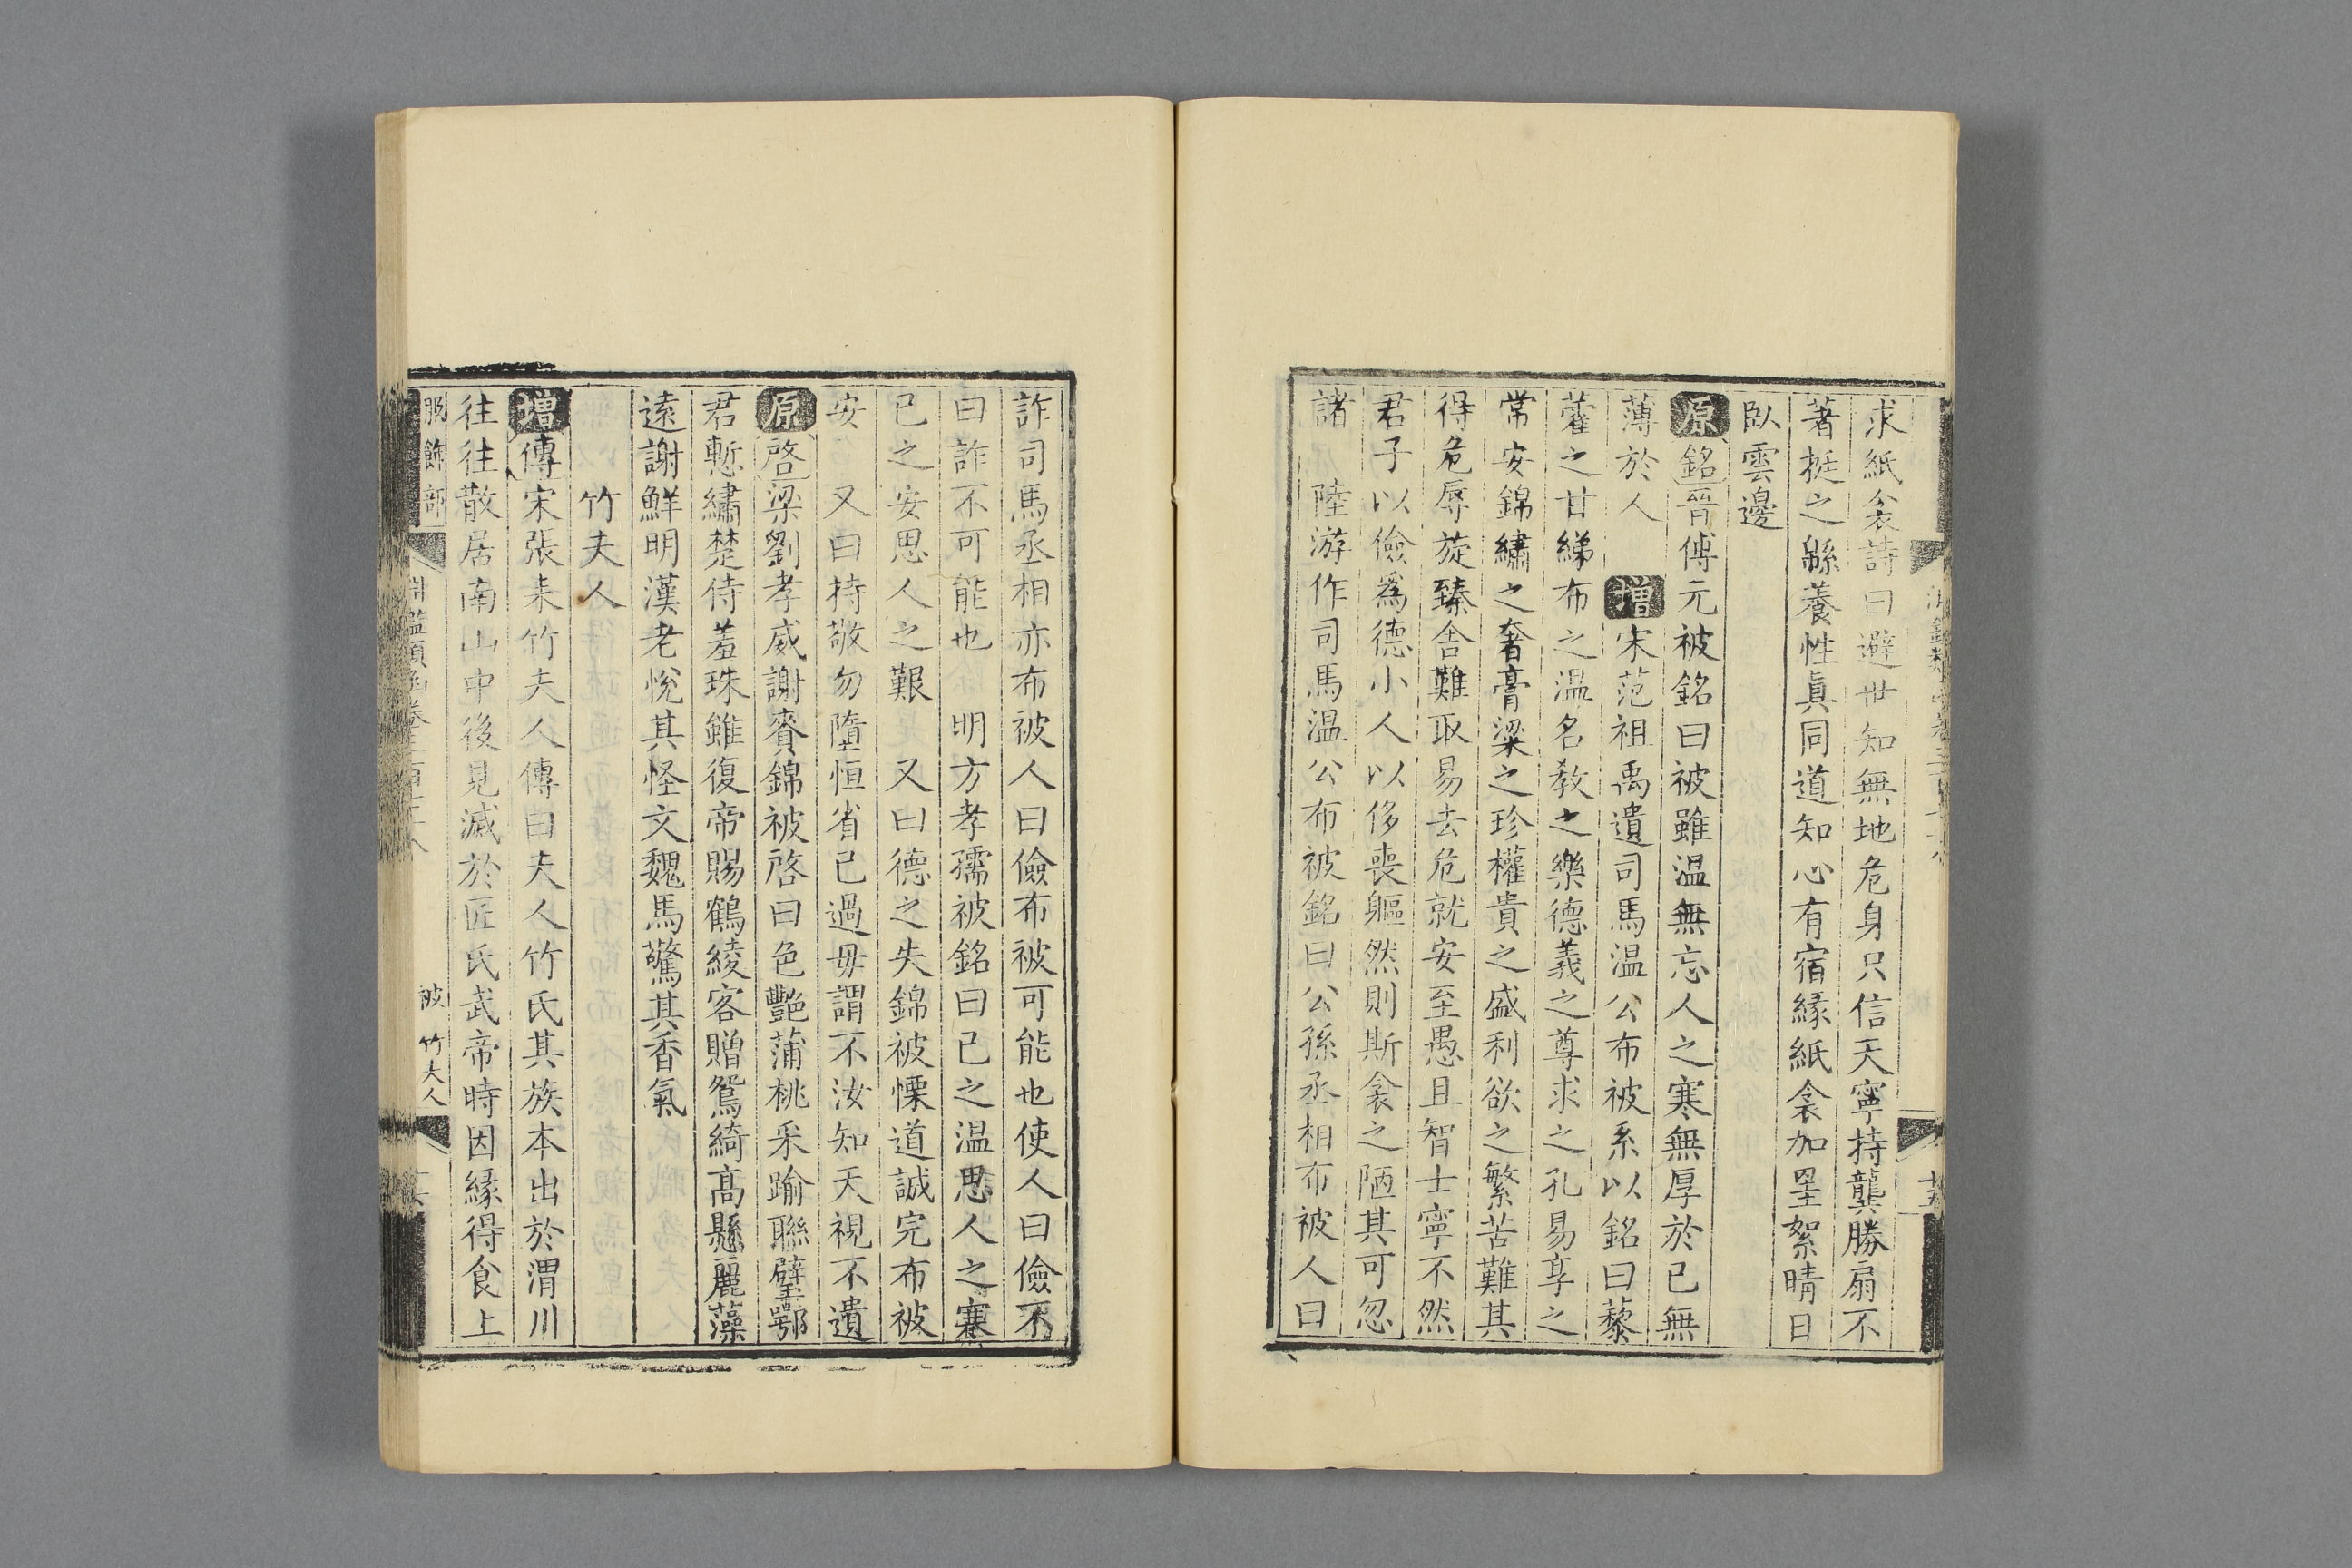 求紙衾詩曰避世知無地危身只信天寧持龔勝扇不
著挺之緜養性眞同道知心有宿緣紙衾加墨絮晴日
臥雲邊
原銘晉傅元被銘曰被雖温無忘人之寒無厚於已無
薄於人 增宋范祖禹遺司馬温公布被系以銘曰藜
藿之甘綈布之温名教之樂德義之尊求之孔易享之
常安錦繡之奢膏粱之珍權貴之盛利欲之繁苦難其
得危辱旋臻舎難取易去危就安至愚且智士寧不然
君子以儉爲德小人以侈喪軀然則斯衾之陋其可忽
諸 陸游作司馬温公布被銘曰公孫丞相布被人曰
詐司馬丞相亦布被人曰儉布被可能也使人曰儉不
曰詐不可能也 明方孝孺被銘曰已之温思人之寒
已之安思人之艱 又曰德之失錦被慄道誠完布被
安 又曰持敬勿墮恒省已過毋謂不汝知天視不遺
原啓梁劉孝威謝賚錦被啓曰色艷蒲桃采踰聯璧鄂
君慙繡楚侍羞珠雖復帝賜鶴綾客贈鴛綺髙懸麗藻
遠謝鮮明漢老悅其怪文魏馬驚其香氣
竹夫人
增傳宋張耒竹夫人傳曰夫人竹氏其族本出於渭川
往往散居南山中後見滅於匠氏武帝時因緣得食上
服飾部 淵鑑類函卷三百七十八 被 竹夫人